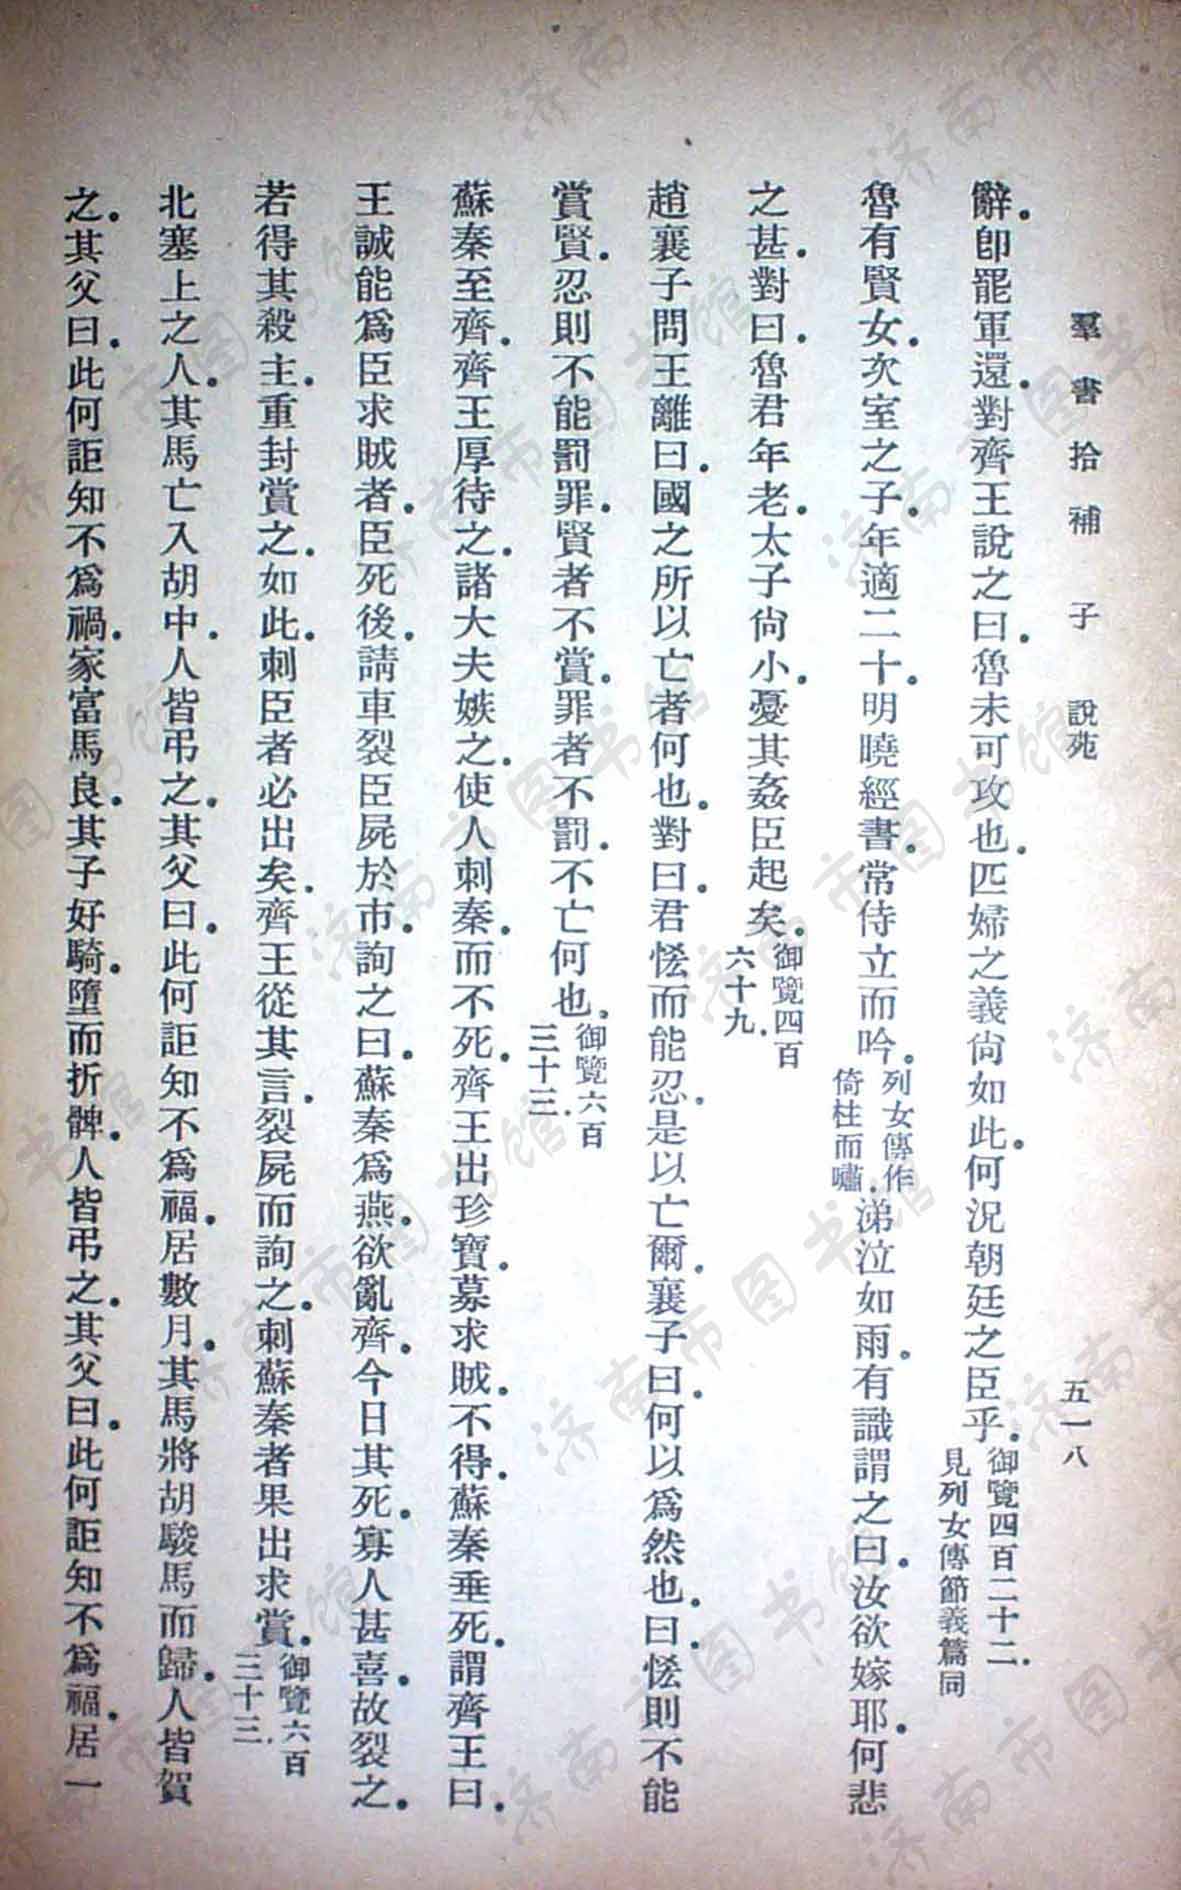 羣書拾補 子 說苑 五一八
辭．卽罷軍還．對齊王說之曰．魯未可攻也．匹婦之義尙如此．何況朝廷之臣乎．御覽四百二十二．見列女傳節義篇同
魯有賢女．次室之子．年適二十．明曉經書．常侍立而吟．列女傳作倚柱而嘯．涕泣如雨．有識謂之曰．汝欲嫁耶．何悲
之甚．對曰．魯君年老．太子尙小．憂其姦臣起矣．御覽四百六十九．
趙襄子問王離曰．國之所以亡者何也．對曰．君恡而能忍．是以亡爾．襄子曰．何以爲然也．曰．恡則不能
賞賢．忍則不能罰罪．賢者不賞．罪者不罰．不亡何也．御覽六百三十三．
蘇秦至齊．齊王厚待之．諸大夫嫉之．使人刺秦．而不死．齊王出珍寶．募求賊．不得．蘇秦垂死．謂齊王曰．
王誠能爲臣求賊者．臣死後．請車裂臣屍於市．詢之曰．蘇秦爲燕．欲亂齊．今日其死．寡人甚喜．故裂之．
若得其殺主．重封賞之．如此．刺臣者必出矣．齊王從其言．裂屍而詢之．刺蘇秦者果出求賞．御覽六百三十三．
北塞上之人．其馬亡入胡中．人皆弔之．其父曰．此何詎知不爲福．居數月．其馬將胡駿馬而歸．人皆賀
之．其父曰．此何詎知不爲禍．家富馬良．其子好騎．墮而折髀．人皆弔之．其父曰．此何詎知不爲福．居一
济南市图书馆